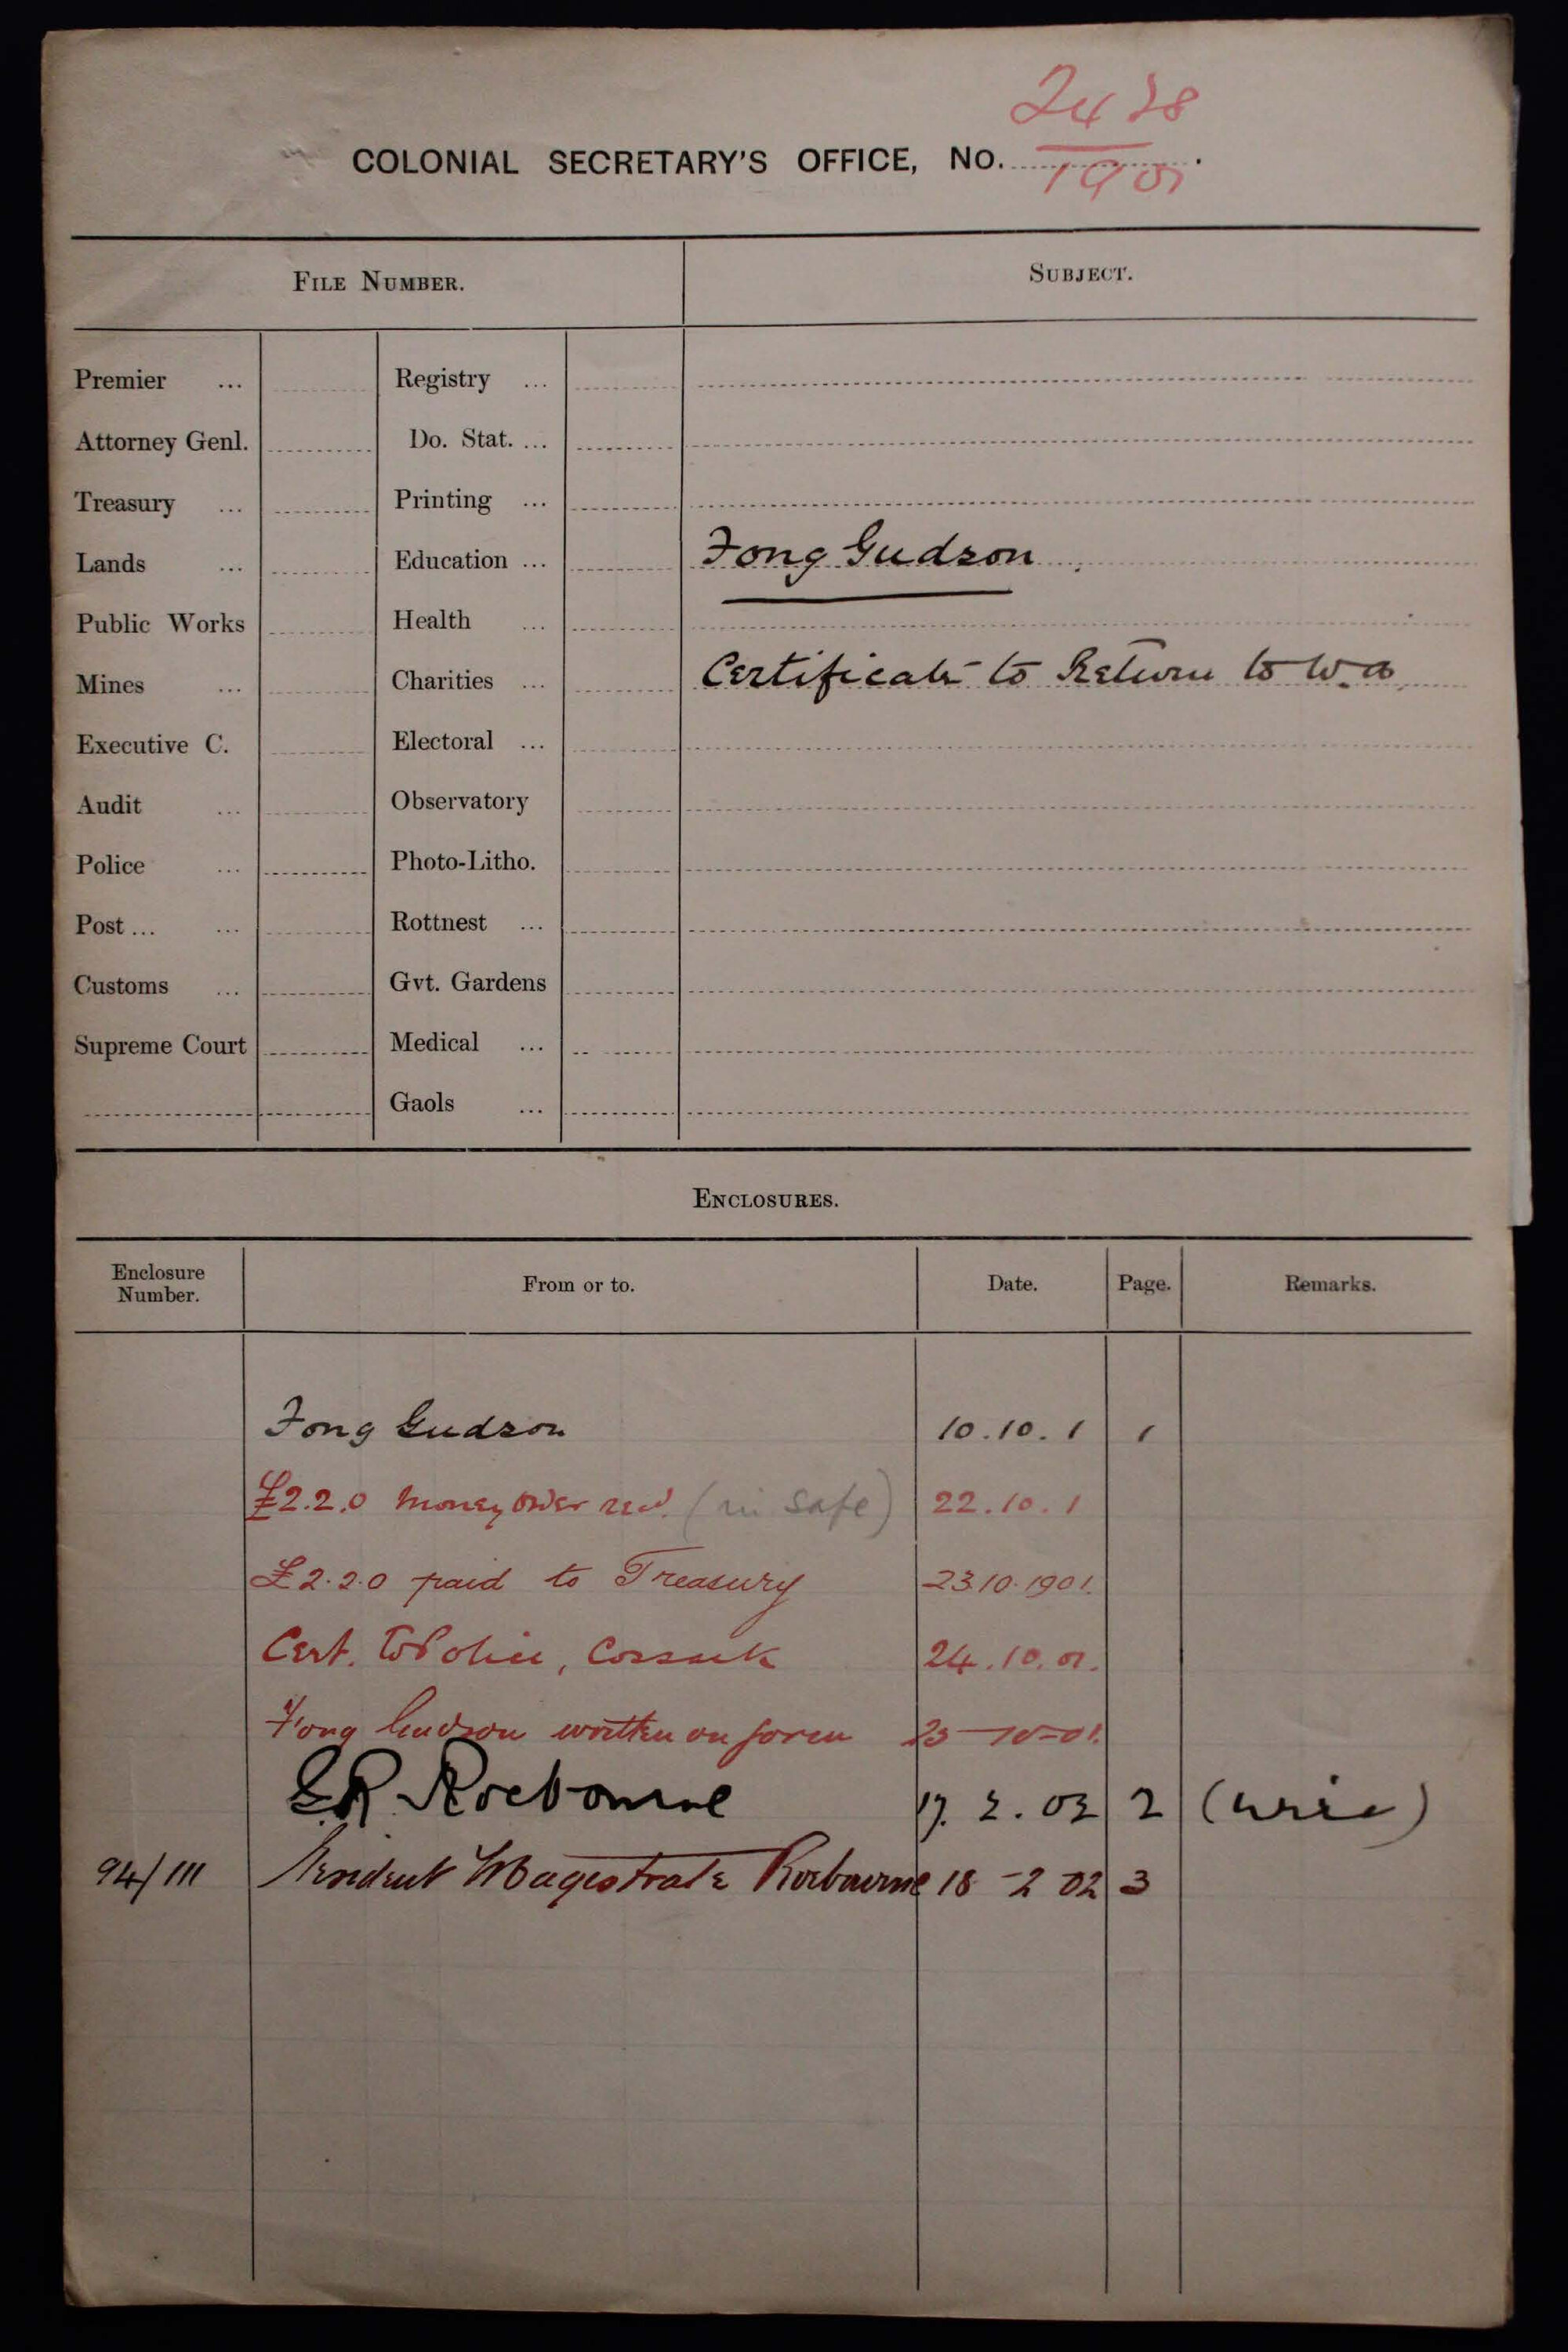 2428
COLONIAL SECRETARY'S OFFICE, NO. .
1901
FILE NUMBER. SUBJECT.
Premier ... Registry ...
Attorney Genl. Do. Stat. ...
Treasury ... Printing ...
Lands ... Education ... Fong Gudson
Public Works Health ...
Mines ... Charities ... Certificate to Return to W.a
Executive C. Electoral ...
Audit ... Observatory
Police ... Photo-Litho.
Post ... ... Rottnest ...
Customs ... Gvt. Gardens
Supreme Court Medical ...
Gaols ...
ENCLOSURES.
Enclosure Number. From or to. Date. Page. Remarks.
Fong Gudson 10.10.1 1
£2.2.0 money order recd. (in safe) 22.10.1
£2.2.0 paid to Treasury 23.10.1901.
Cert. to Police, Cossack 24.10.01.
Fong Gudson written on form 25-10-01.
Roebourne 17.2.02 2 (wire)
94/111 Resident Magistrate Roebourne 18-2-02 3